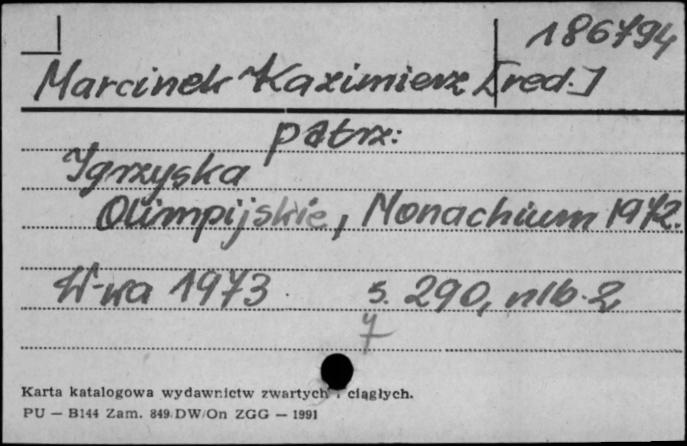 186794
Marcinek Kazimierz [red.]
patrz:
Igrzyska
Olimpijskie, Monachium 1972.
W-wa 1973. s. 290, nlb. 2
7
Karta katalogowa wydawnictw zwartych i ciągłych.
PU — B144 Zam. 849 DW/On ZGG — 1991